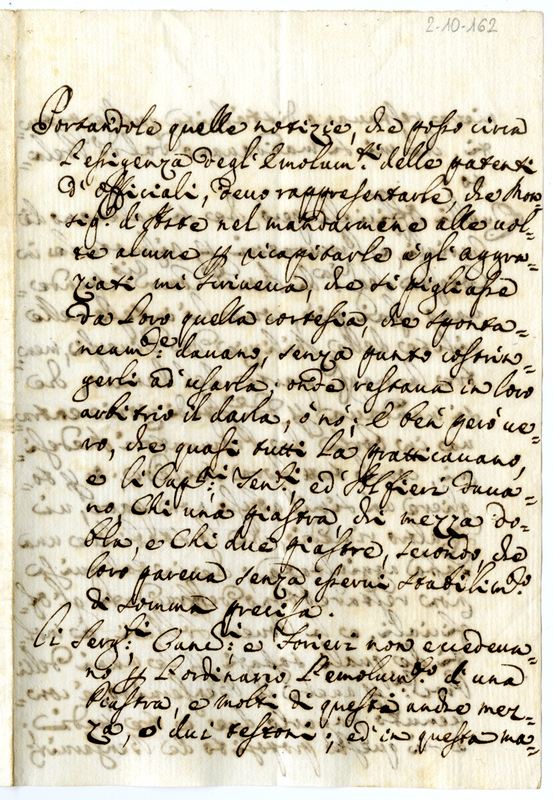 2-10-162
Portandole quelle notizie, che posso circa
l'essigenza degl'Emolum.ti delle patenti
d'Officiali, devo rappresentarle, che Mon=
sig.r d'Aste nel mandarmene alle vol=
te alcune p ricapitarle a gl'Aggra=
ziati mi scriveva, che si pigliasse
da loro quella cortesia, che sponta=
neam.e davano, senza punto costrin=
gerli ad usarla. onde restava in loro
arbitrio il darla, ò nò; È ben però ve=
ro, che quasi tutti la pratticavano,
e li Cap.ni Ten.ti, ed Alfieri dava=
no, Chi una piastra, chi mezza do=
bla, e Chi due piastre, secondo, che
loro pareva senza esservi stabilim.to
di somma precisa.
Li Serg.ti Canc.ri e Forieri non eccedeva=
no p l'ordinario l'emolum.to di una
Piastra, e molti di questi anche mez=
za, ò dui testoni; ed in questa ma=